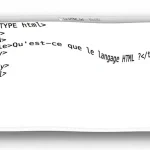 TYPE html>
>
>
le>Qu'est-ce que le langage HTML ?</t
>
y>
l>